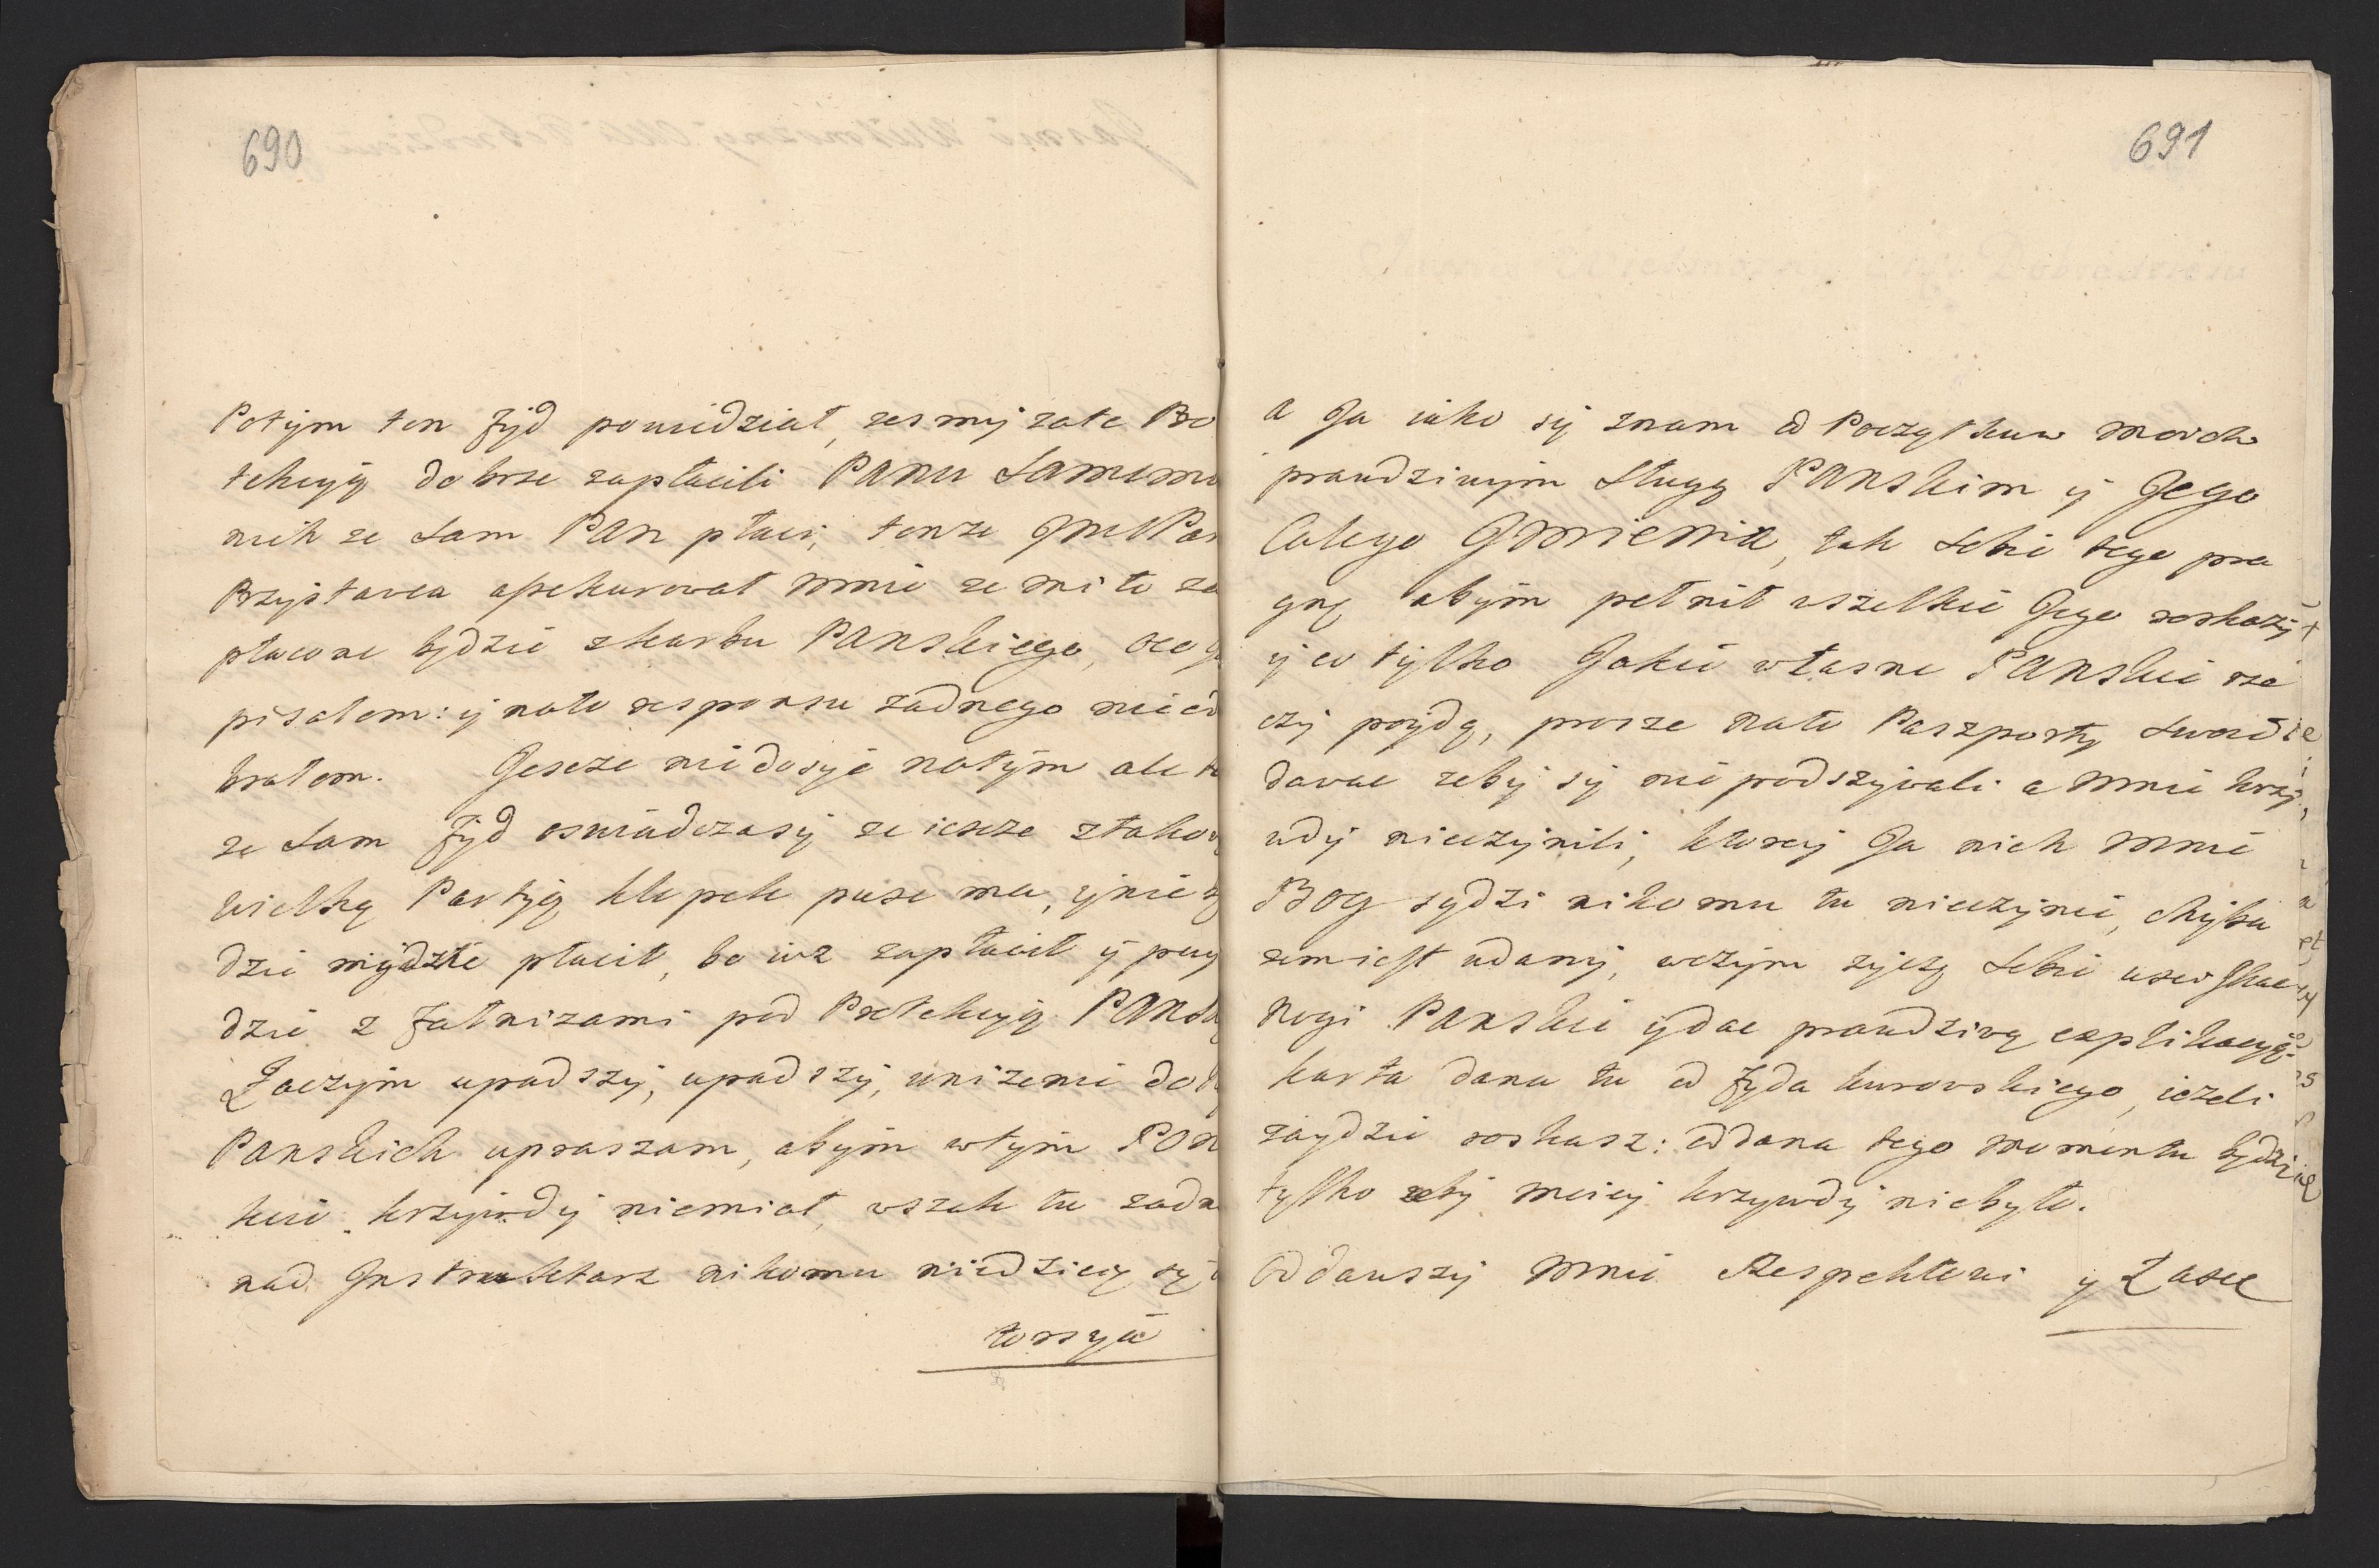 690
Potym ten Zyd powiedział, zesmy zate Pro
tekcyją dobrze zapłacili PANU Samemu
niech ze Sam PAN płaci, tenze JmcPan
Przystavca aszekurował mnie ze mi to za
płacone będzie zkarbu PANskiego, oco ja
pisałem: y nato responsu zadnego nieode
brałem. Jescze niedosyć natym ale te
ze Sam Zyd osmiadczasię ze iescze ztakow
wielką Partyią klepek pusc ma, y nie bę
dzie nigdzie płacił, bo iuz zapłacił y puy
dzie z Załnizami pod Protekcyią PANsk
Zaczym upadszy, upadszy, unizenie do N
Panskich upraszam, abym wtym PAN
kiei krzywdy niemiał, wszak tu zadn
nad Instruktarz nikomu niedzieie się
torsyia
691
a Ja iako się znam od Początkuw moich
prawdziwym Sługą PANskim y Jego
Całego Imienia, tak Sobie tego pra
gnę abym pełnił wszelkie Jego roskazy
y co tylko Jakie własne PANskie rze
czy poydą, prosze nato Paszporty Swoie
dawac zeby się nie podszywali a mnie krzy
wdy nieczynili, ktorey Ja niech mnie
Bog sądzi nikomu tu nieczynie, chyba
zemiest udany, wczym zyczę Sobie uscisskac
Nogi PANskie ydac prawdziwą explikacyią
karta dana tu od Zyda kurowskiego, iezeli
zaydzie roskasz: oddana tego momentu będzie
tylko zeby moiey krzywdy niebyło.
Oddawszy mnie Respektowi y Łasce